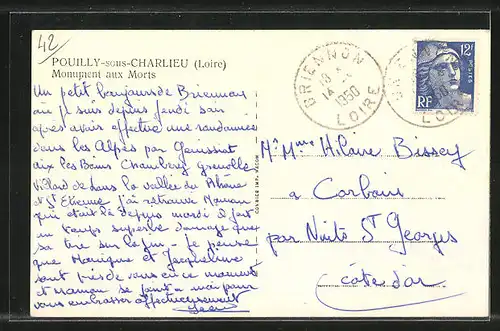 42
POUILLY-sous-CHARLIEU (Loire)
Monument aux Morts
BRIENNON
14
1950
LOIRE
12F
POSTES
RF
Un petit bonjour de Briennon
où je suis depuis jeudi soir
après avoir effectué une randonnée
dans les Alpes par Génissiat
aix les Bains Chambery grenoble
Villard de Lans la vallée du Rhône
et St Etienne j'ai retrouvé Maman
qui était là depuis mardi il fait
un temps superbe dommage que
sa tire sur la fin. je pense
que Monique et Jacqueline
sont près de vous en ce moment
et maman se joint a moi pour
vous embrasser affectueusement
Mr Mme Hilaire Bissey
a Corboin
par Nuits St Georges
Côte d'or